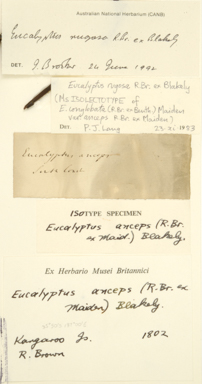 Australian National Herbarium (CANB)
Eucalyptus rugosa R.Br. ex Blakely
DET. J. Brooker 24 June 1992
Eucalyptus rugosa R.Br. ex Blakely
(Ms ISOLECTOTYPE of
E. conglobata (R.Br. ex Benth) Maiden
var anceps R.Br. ex Maiden)
Det: P.J. Lang 23.xi.1983
Eucalyptus anceps
ISOTYPE SPECIMEN
Eucalyptus anceps (R.Br.
ex Maid.) Blakely.
Ex Herbario Musei Britannici
Eucalyptus anceps (R.Br. ex
Maiden) Blakely.
Kangaroo Is. 1802
R. Brown